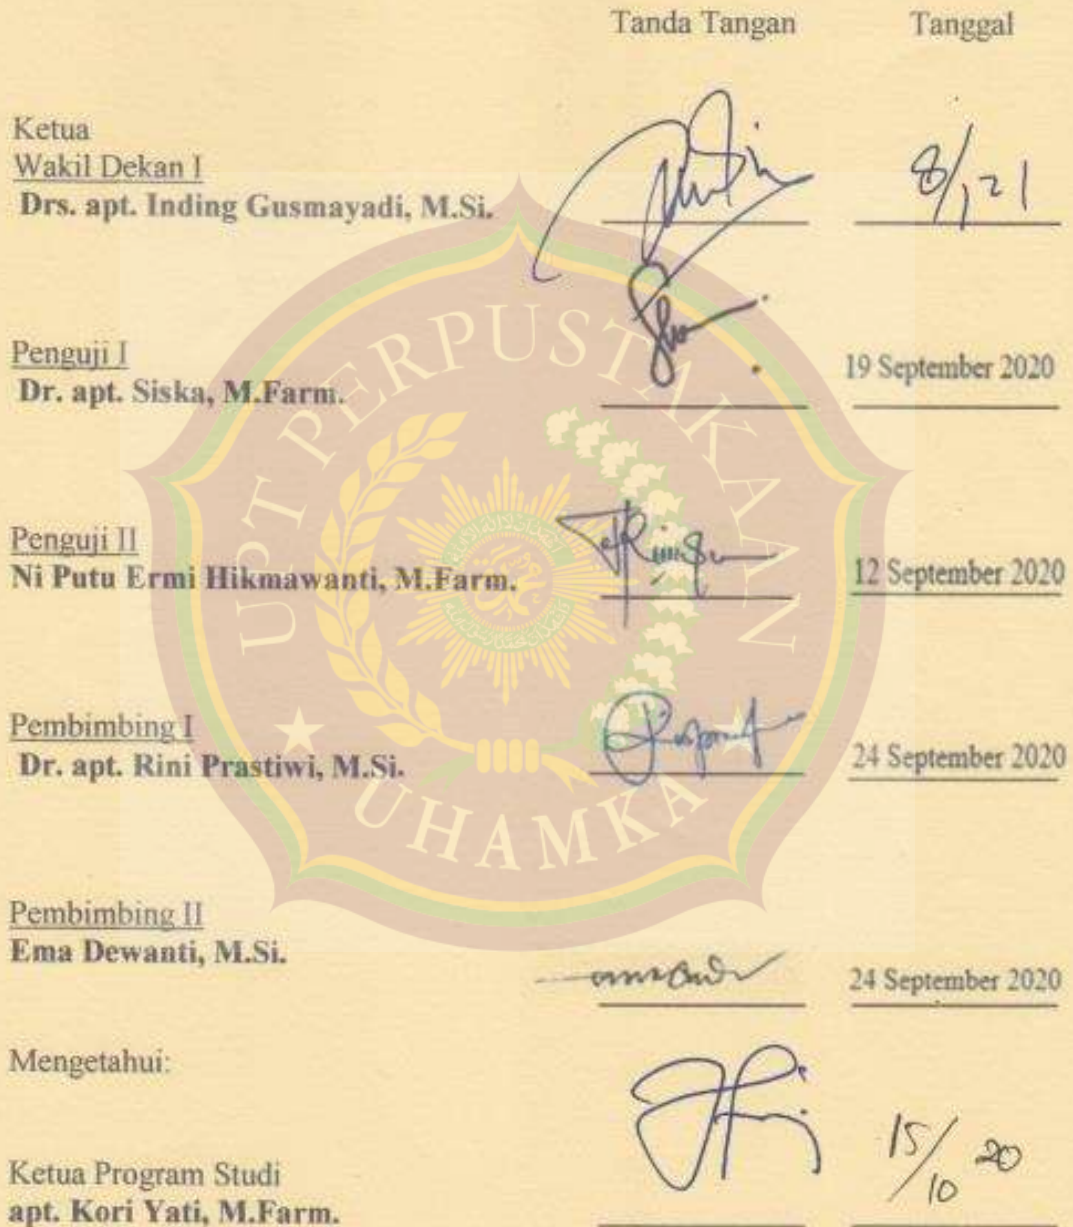 Tanda Tangan Tanggal
Ketua
Wakil Dekan I
Drs. apt. Inding Gusmayadi, M.Si.
8/1 21
Penguji I
Dr. apt. Siska, M.Farm.
19 September 2020
Penguji II
Ni Putu Ermi Hikmawanti, M.Farm.
12 September 2020
Pembimbing I
Dr. apt. Rini Prastiwi, M.Si.
24 September 2020
Pembimbing II
Ema Dewanti, M.Si.
24 September 2020
Mengetahui:
Ketua Program Studi
apt. Kori Yati, M.Farm.
15/10 20
UPT PERPUSTAKAAN
UHAMKA